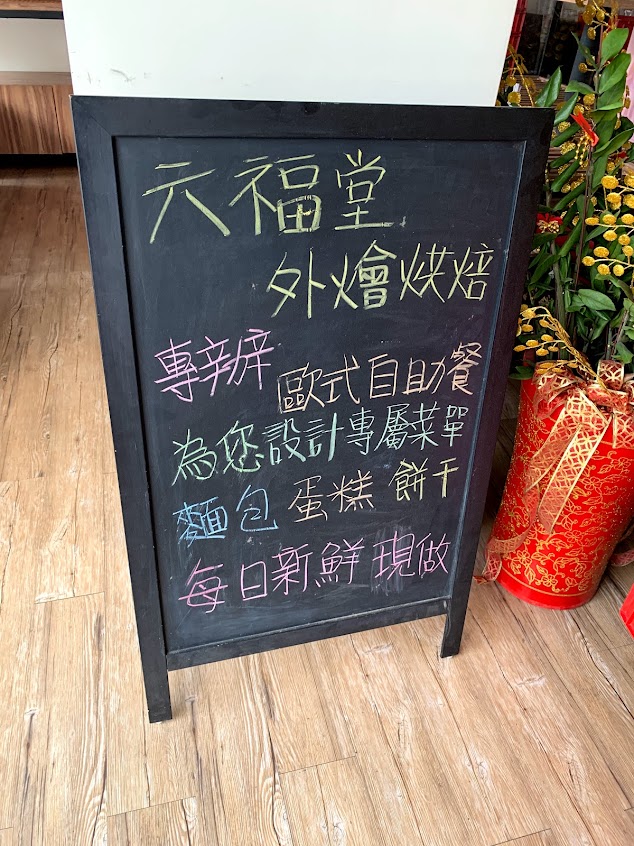 六福堂
外燴烘焙
專辦 歐式自助餐
為您設計專屬菜單
麵包 蛋糕 餅干
每日新鮮 現做